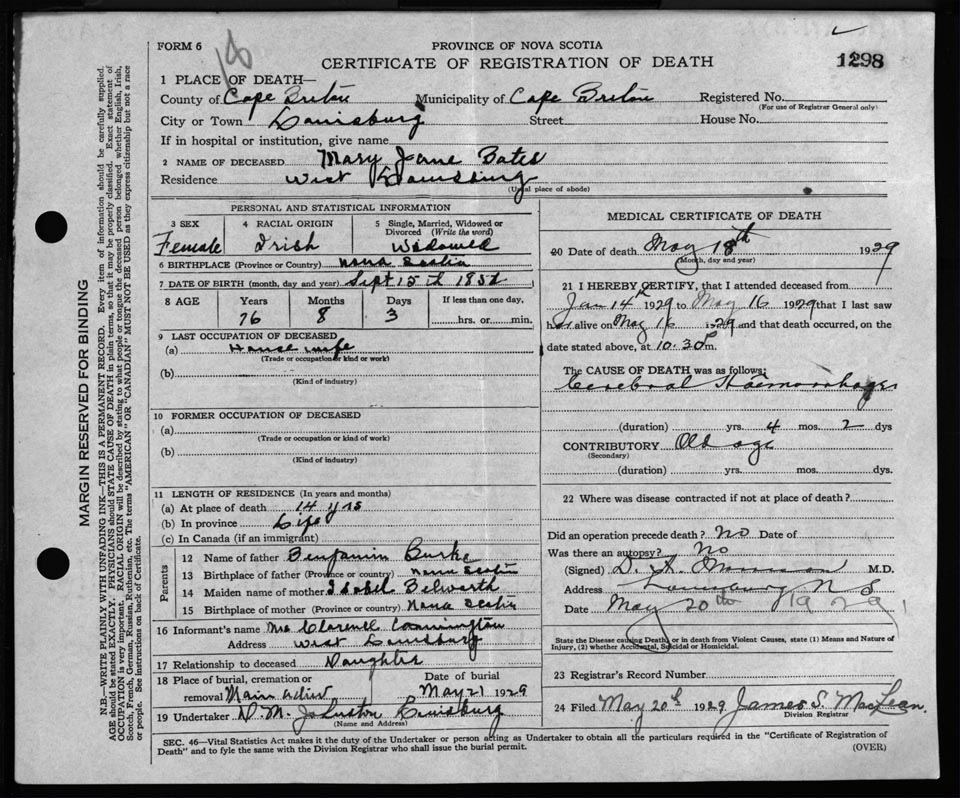 FORM 6
18
PROVINCE OF NOVA SCOTIA
CERTIFICATE OF REGISTRATION OF DEATH
1298
1 PLACE OF DEATH—
County of Cape Breton Municipality of Cape Breton Registered No.
(For use of Registrar General only)
City or Town Louisburg Street House No.
If in hospital or institution, give name
2 NAME OF DECEASED Mary Jane Bates
Residence West Louisburg
(Usual place of abode)
PERSONAL AND STATISTICAL INFORMATION
3 SEX 4 RACIAL ORIGIN 5 Single, Married, Widowed or Divorced (Write the word)
Female Irish Widowed
6 BIRTHPLACE (Province or Country) Nova Scotia
7 DATE OF BIRTH (month, day and year) Sept 15th 1852
8 AGE Years Months Days If less than one day,
76 8 3 hrs. or min.
9 LAST OCCUPATION OF DECEASED
(a) House wife
(Trade or occupation or kind of work)
(b)
(Kind of industry)
10 FORMER OCCUPATION OF DECEASED
(a)
(Trade or occupation or kind of work)
(b)
(Kind of industry)
11 LENGTH OF RESIDENCE (In years and months)
(a) At place of death 14 yrs
(b) In province Life
(c) In Canada (if an immigrant)
Parents
12 Name of father Benjamin Burke
13 Birthplace of father (Province or country) Nova Scotia
14 Maiden name of mother Isabel
15 Birthplace of mother (Province or Country) Nova Scotia
16 Informant's name Mrs Clarence
Address West Louisburg
17 Relationship to deceased Daughter
18 Place of burial, cremation or removal Main Date of burial May 21 1929
19 Undertaker D. M. Johnston Louisburg
(Name and Address)
MEDICAL CERTIFICATE OF DEATH
20 Date of death May 18th 1929
(Month, day and year)
21 I HEREBY CERTIFY, that I attended deceased from
Jan 14th 1929 to May 16 1929 that I last saw
her alive on May 16 1929 and that death occurred, on the
date stated above, at 10.30 P m.
The CAUSE OF DEATH was as follows:
Cerebral Haemorrhage
(duration) yrs. 4 mos. 2 dys
CONTRIBUTORY Old age
(Secondary)
(duration) yrs. mos. dys.
22 Where was disease contracted if not at place of death?
Did an operation precede death? No Date of
Was there an autopsy? No
(Signed) D. A. Morrison M.D.
Address Louisburg N S
Date May 20th 1929
State the Disease causing Death, or in death from Violent Causes, state (1) Means and Nature of
Injury, (2) whether Accidental, Suicidal or Homicidal.
23 Registrar's Record Number
24 Filed May 20th 1929 James S. MacLean.
Division Registrar
SEC. 46—Vital Statistics Act makes it the duty of the Undertaker or person acting as Undertaker to obtain all the particulars required in the "Certificate of Registration of
Death" and to fyle the same with the Division Registrar who shall issue the burial permit.
(OVER)
MARGIN RESERVED FOR BINDING
N.B.—WRITE PLAINLY WITH UNFADING INK—THIS IS A PERMANENT RECORD. Every item of information should be carefully supplied.
AGE should be stated EXACTLY. PHYSICIANS should STATE CAUSE OF DEATH in plain terms, so that it may be properly classified. Exact statement of
OCCUPATION is very important. RACIAL ORIGIN will be described by stating to what people or tongue the deceased person belonged whether English, Irish,
Scotch, French, German, Russian, Ruthenian, etc. The terms "AMERICAN" OR "CANADIAN" MUST NOT BE USED as they express citizenship but not a race
or people. See instructions on back of Certificate.